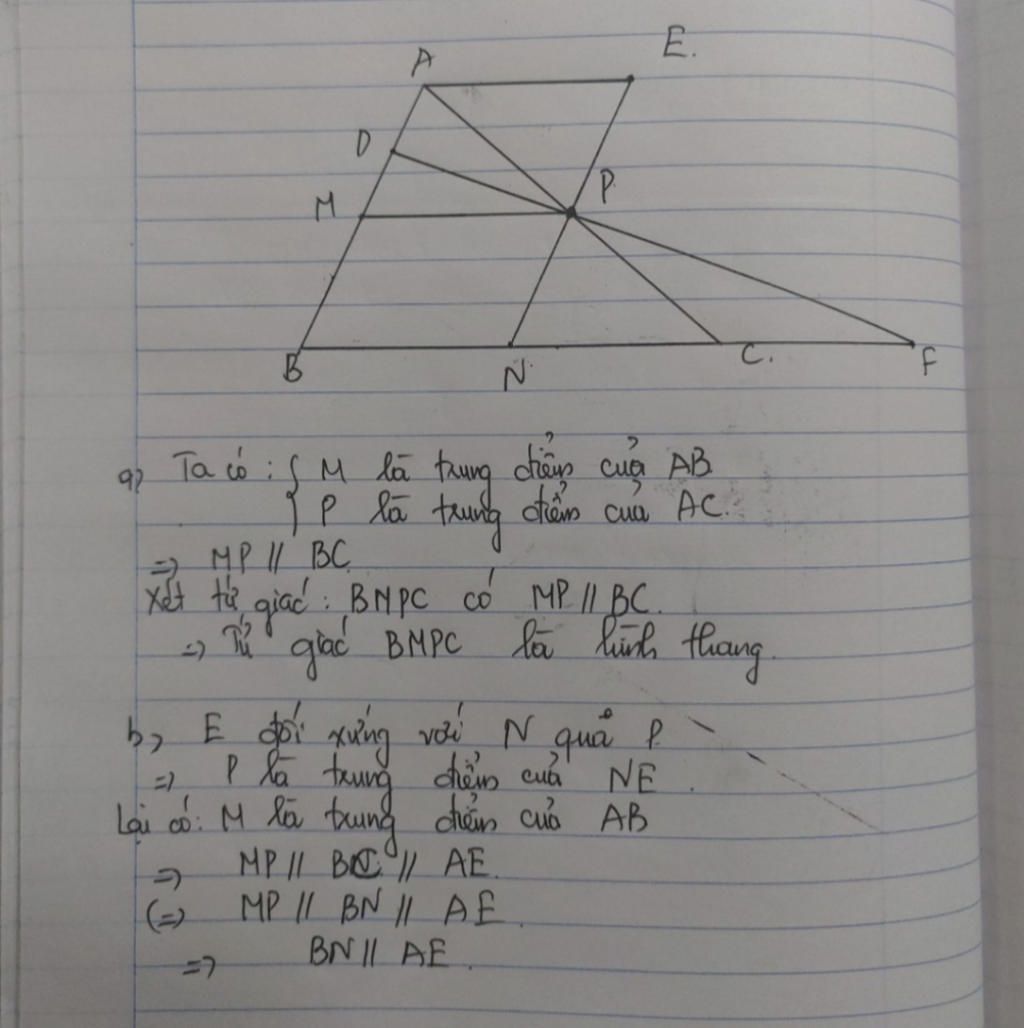 A
E.
D
M
P
B
N
C.
F
a, Ta có: { M là trung điểm của AB
P là trung điểm của AC.
=> MP // BC
Xét tứ giác: BMPC có MP // BC.
=> Tứ giác BMPC là hình thang.
b, E đối xứng với N qua P
=> P là trung điểm của NE.
Lại có: M là trung điểm của AB
=> MP // BC // AE.
(=> MP // BN // AE.
=> BN // AE.